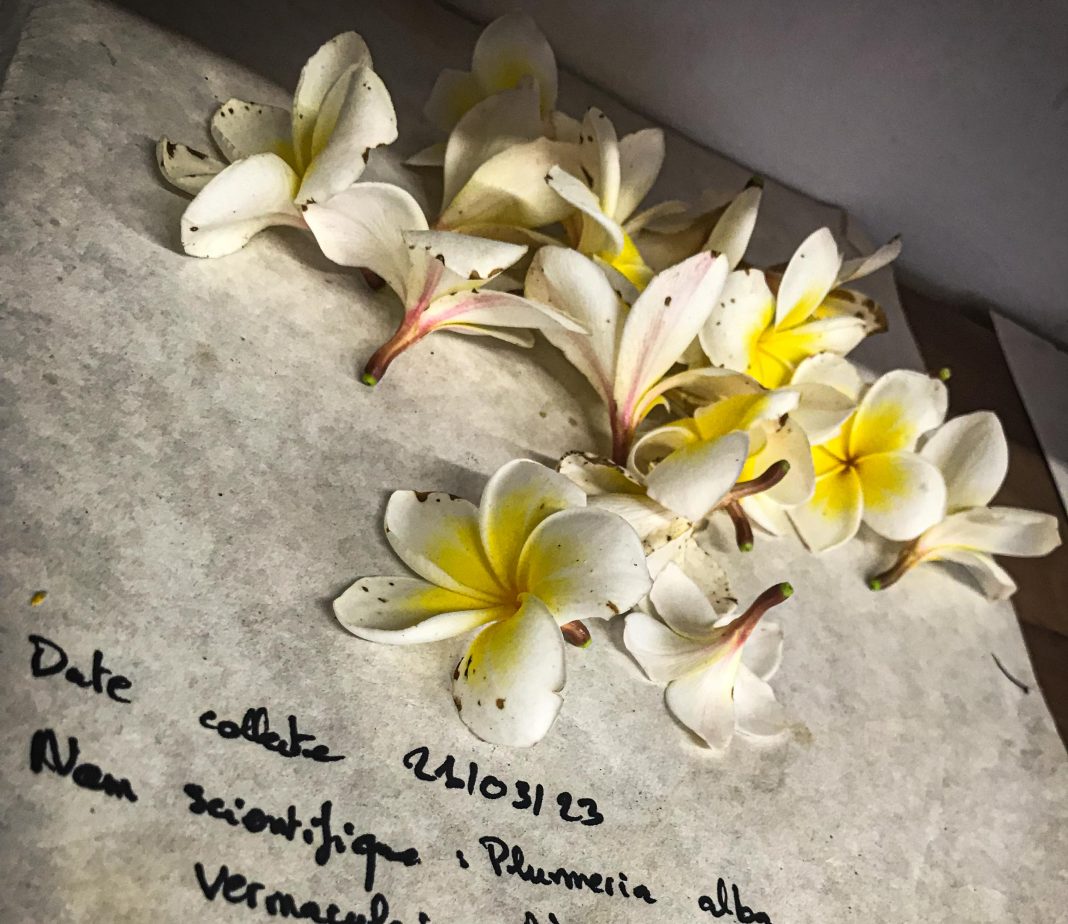 Date collecte 21/03/23
Nom scientifique : Plumeria alba
vernaculai